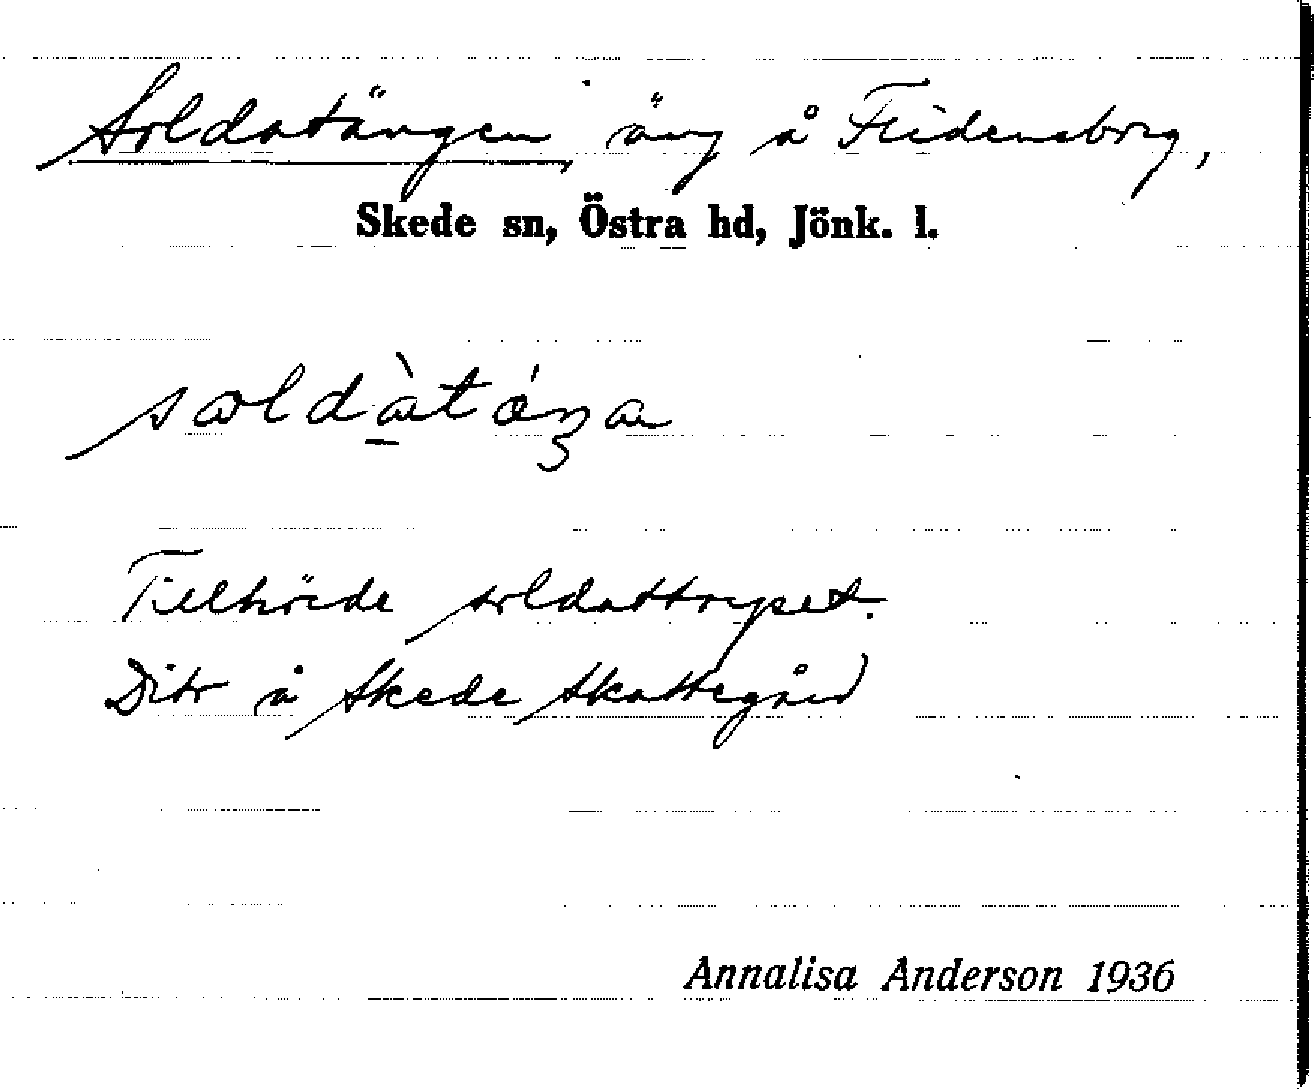 Soldatängen äng å Fridensborg,
Skede sn, Östra hd, Jönk. l.
Tillhörde soldattorpet.
Ditr å Skede Skattegård
Annalisa Anderson 1936